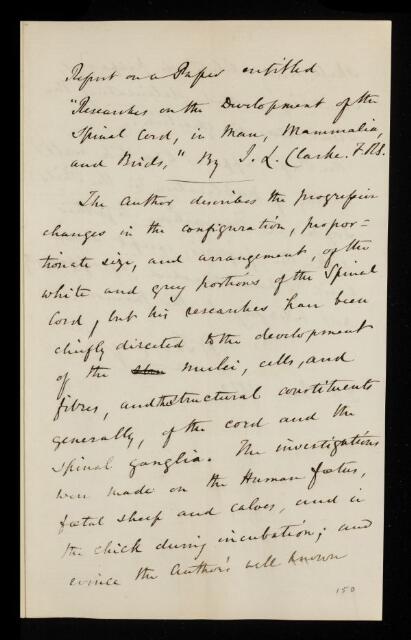 Report on a Paper entitled
"Researches on the Development of the
Spinal Cord, in Man, Mammalia,
and Birds," By J. L. Clarke. F.R.S.
The Author describes the progressive
changes in the configuration, propor=
tionate size, and arrangement, of the
white and grey portions of the Spinal
Cord, but his researches have been
chiefly directed to the development
of the nuclei, cells, and
fibres, and the structural constituents
generally, of the cord and the
spinal ganglia. The investigations
were made on the Human fœtus,
fœtal sheep and calves, and in
the chick during incubation; and
evince the Author's well known
150